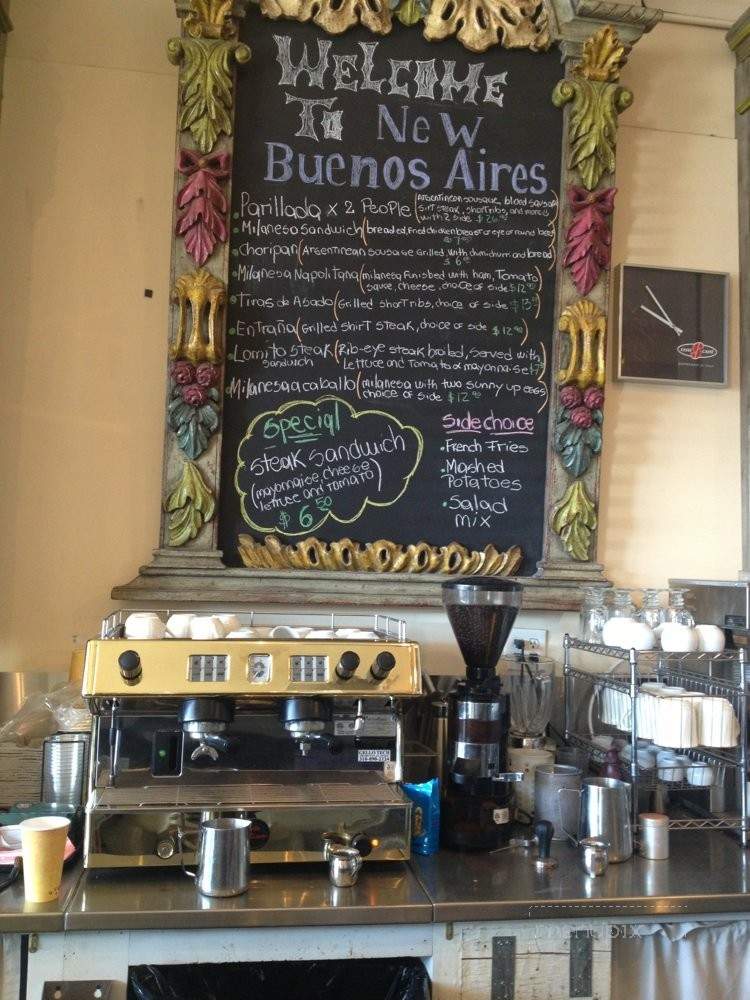 WELCOME
To New
Buenos Aires
Parillada x 2 People (Argentinean sausage, blood sausage
with 2 side $26
Milanesa sandwich (breaded, fried chicken breast or eye of round beef)
$7
Choripan (Argentinean sausage grilled with chimichurri and bread)
$6
Milanesa Napolitana (milanesa furnished with ham, Tomato
sauce, cheese. choice of side $12.90)
Tiras de Asado (Grilled short ribs, choice of side $13
Entraña (Grilled shirt steak, choice of side $12.90)
Lomito steak (Rib-eye steak broiled, served with
sandwich lettuce and Tomato or mayonnaise $7
Milanesa a caballo (milanesa with two sunny up eggs
choice of side $12.90)
Special
Steak Sandwich
(mayonnaise, cheese
lettuce and Tomato)
$6.50
Side choice
• French Fries
• Mashed
Potatoes
• Salad
mix
GELLO TECH